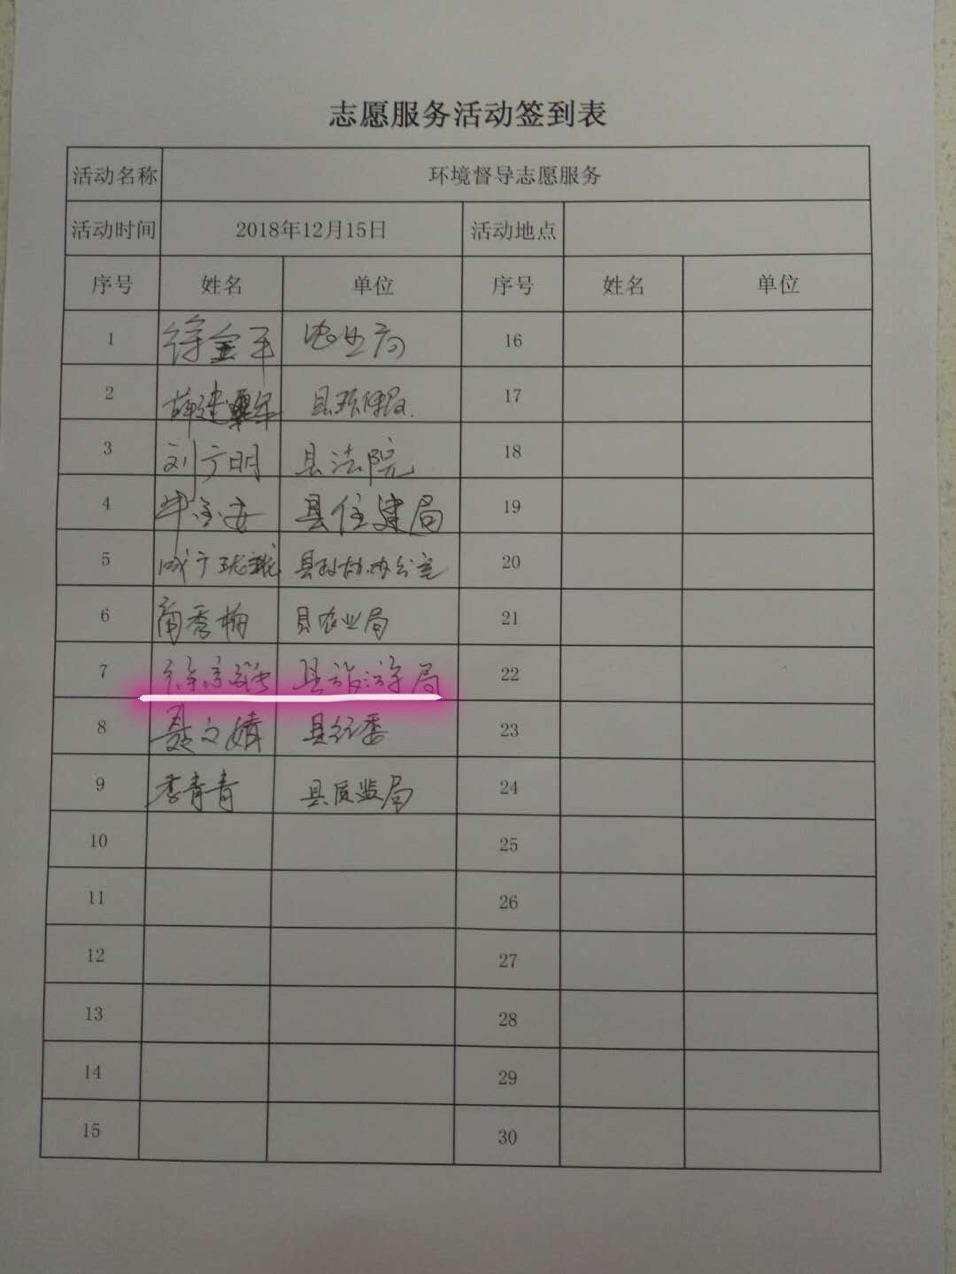 志愿服务活动签到表
活动名称 环境督导志愿服务
活动时间 2018年12月15日 活动地点
序号 姓名 单位 序号 姓名 单位
1 徐金平 农业局 16
2 薛建军 17
3 刘广明 县法院 18
4 牛 县住建局 19
5 成广 县政协办公室 20
6 南秀梅 县农业局 21
7 徐 县旅游局 22
8 聂文婧 县经委 23
9 李青青 县质监局 24
10 25
11 26
12 27
13 28
14 29
15 30